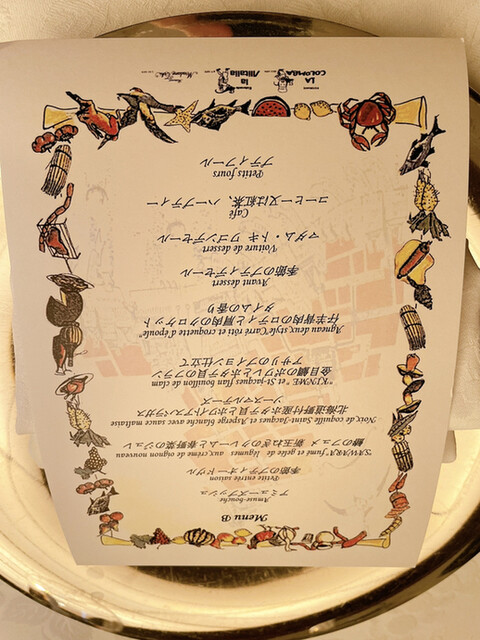 Menu B
Amuse-bouche
アミューズブッシュ
Petite entrée saison
季節のプティオードヴル
"SAWARA" fumé et gelée de légumes, aux crème de oignon nouveau
鰆のフュメ 新玉ねぎのクレームと春野菜のジュレ
Noix de coquille Saint-Jacques et Asperges avec sauce maltaise
北海道野付産ホタテ貝とホワイトアスパラガス
ソースマルテーズ
"KINME" et St-jacques flan bouillon de clam
金目鯛のポワレとホタテ貝のフラン
アサリのブイヨン仕立て
Agneau deux style "Carré rôti et croquette d'épaule"
仔羊背肉のロティと肩肉のクロケット
タイムの香り
Avant dessert
季節のプティデセール
Voiture de dessert
マダム・トキ ワゴンデセール
Café
コーヒー又は紅茶、ハーブティー
Petits fours
プティフール
LA COLOMBA
la Alitalia
Madame Toki